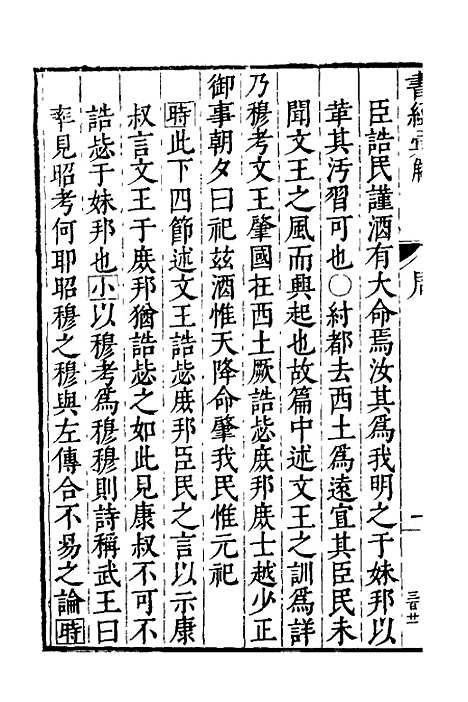 臣誥民謹酒有大命焉汝其為我明之于妹邦以
革其汚習可也○紂都去西土為遠宜其臣民未
聞文王之風而興起也故篇中述文王之訓為詳
乃穆考文王肇國在西土厥誥毖庶邦庶士越少正
御事朝夕曰祀玆酒惟天降命肇我民惟元祀
時此下四節述文王誥毖庶邦臣民之言以示康
叔言文王于庶邦猶誥毖之如此見康叔不可不
誥毖于妹邦也小以穆考為穆穆則詩稱武王曰
率見昭考何耶昭穆之穆與左傳合不易之論時
書經
周